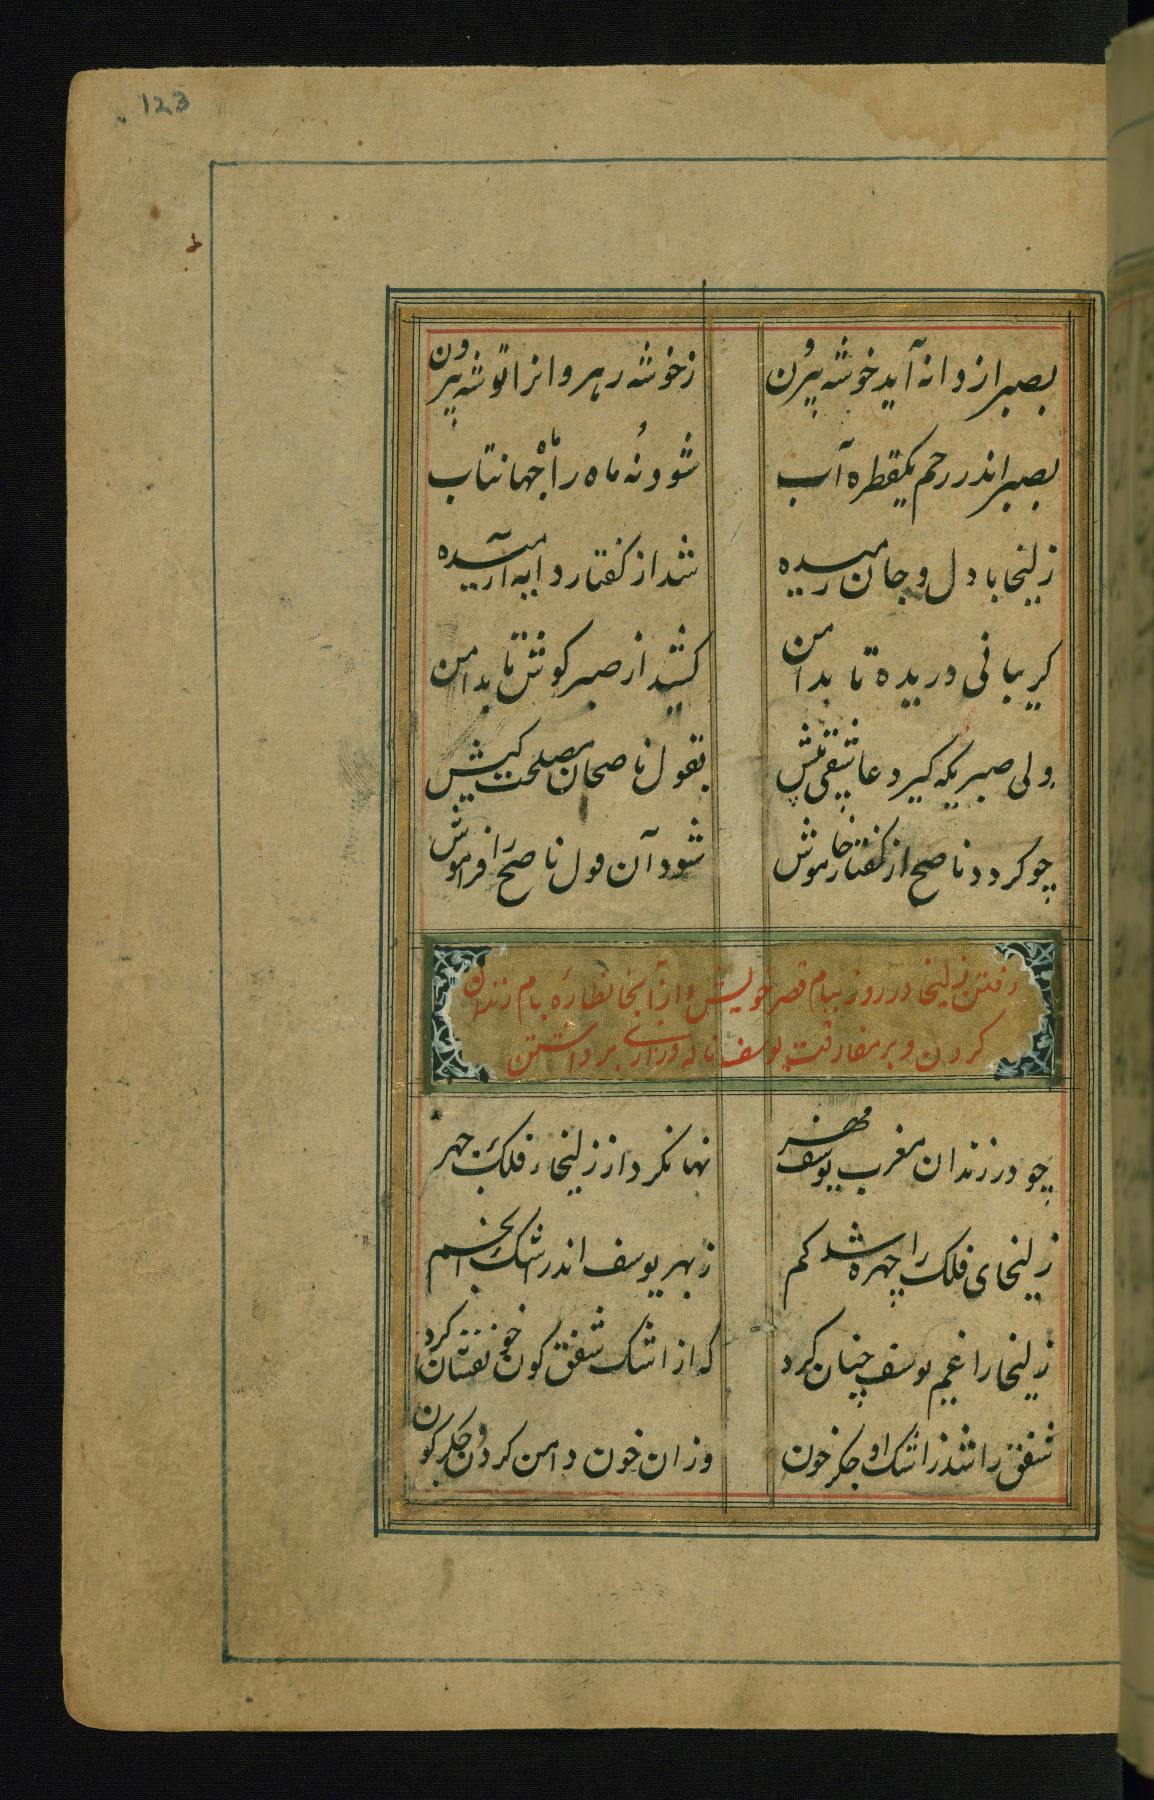 123
بصبر از دانه آید خوشه بیرون
زخوشه رهروانرا توشه بیرون
بصبر اندر رحم یکقطره آب
شود نه ماه را ماه جهانتاب
زلیخا با دل و جان رمیده
شد از کفتار دایه آرمیده
کریبانی دریده تا بدامن
کشید از صبر کوشش تا بدامن
ولی صبریکه کیرد عاشقی پیش
بقول ناصحان مصلحت کیش
چو کردد ناصح از کفتار خاموش
شود آن قول ناصح را فراموش
رفتن زلیخا در روز ببام قصر خویش و از آنجا نظاره بام زندان
کردن و بر مفارقت یوسف ناله و زاری برداشتن
چو در زندان مغرب یوسف مهر
نهان کرد از زلیخای فلک چهر
زلیخای فلک را چهره شد کم
زبهر یوسف اندر اشک انجم
زلیخا را غم یوسف چنان کرد
که از اشک شفق کون خون فشان کرد
شفق را شد ز اشک او جکر خون
وزان خون دامن کردون جکر کون